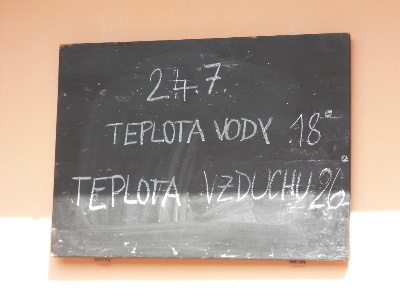 24.7.
TEPLOTA VODY 18°
TEPLOTA VZDUCHU 26°